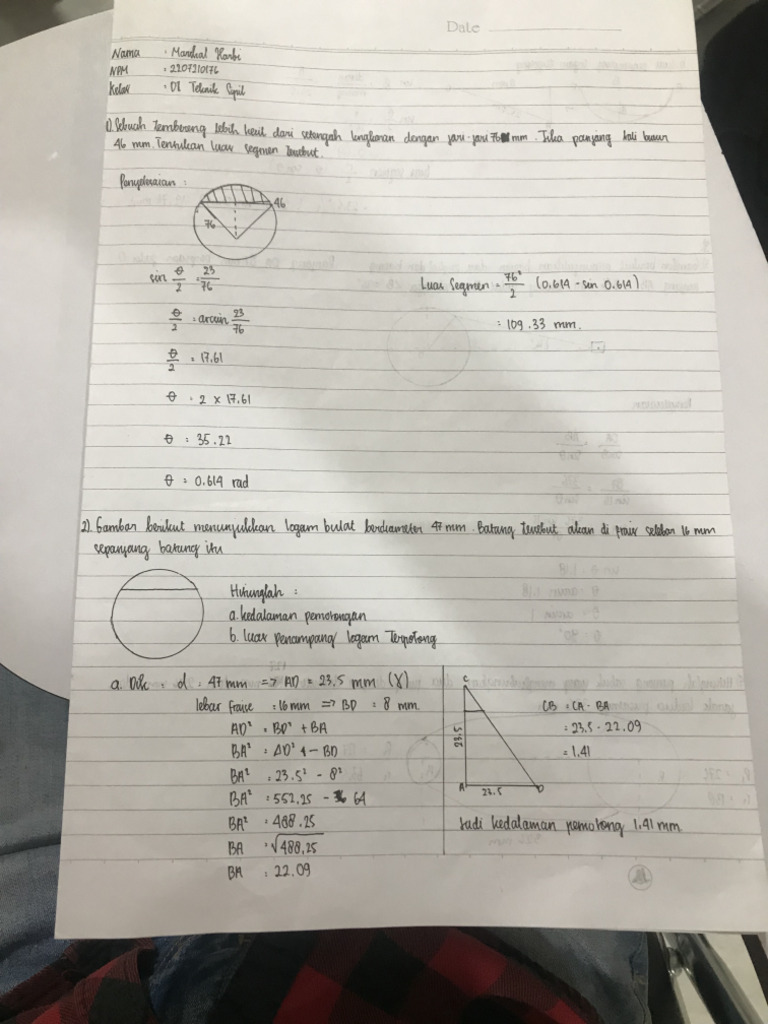 Date
Nama : Marshal Harbi
NPM : 2207210176
Kelas : D1 Teknik Sipil
1) Sebuah tembereng lebih kecil dari setengah lingkaran dengan jari-jari 76 mm. Jika panjang tali busur
46 mm. Tentukan luas segmen tersebut.
Penyelesaian :
46
76
sin θ/2 = 23/76
θ/2 = arcsin 23/76
θ/2 = 17.61
θ = 2 x 17.61
θ = 35.22
θ = 0.614 rad
Luas Segmen = 76²/2 (0.614 - sin 0.614)
= 109.33 mm.
2). Gambar berikut menunjukkan logam bulat berdiameter 47 mm. Batang tersebut akan di frais selebar 16 mm
sepanjang batang itu
Hitunglah :
a. kedalaman pemotongan
b. luas penampang logam Terpotong
a. Dik : d : 47 mm => AD = 23.5 mm (r)
lebar Fraise : 16 mm => BD : 8 mm.
AD² = BD² + BA
BA² = AD² - BD
BA² = 23.5² - 8²
BA² = 552.25 - 64
BA² = 488.25
BA = √488,25
BA = 22.09
C
23.5
A
23.5
D
CB = CA - BA
= 23.5 - 22.09
= 1.41
Jadi kedalaman pemotong 1.41 mm